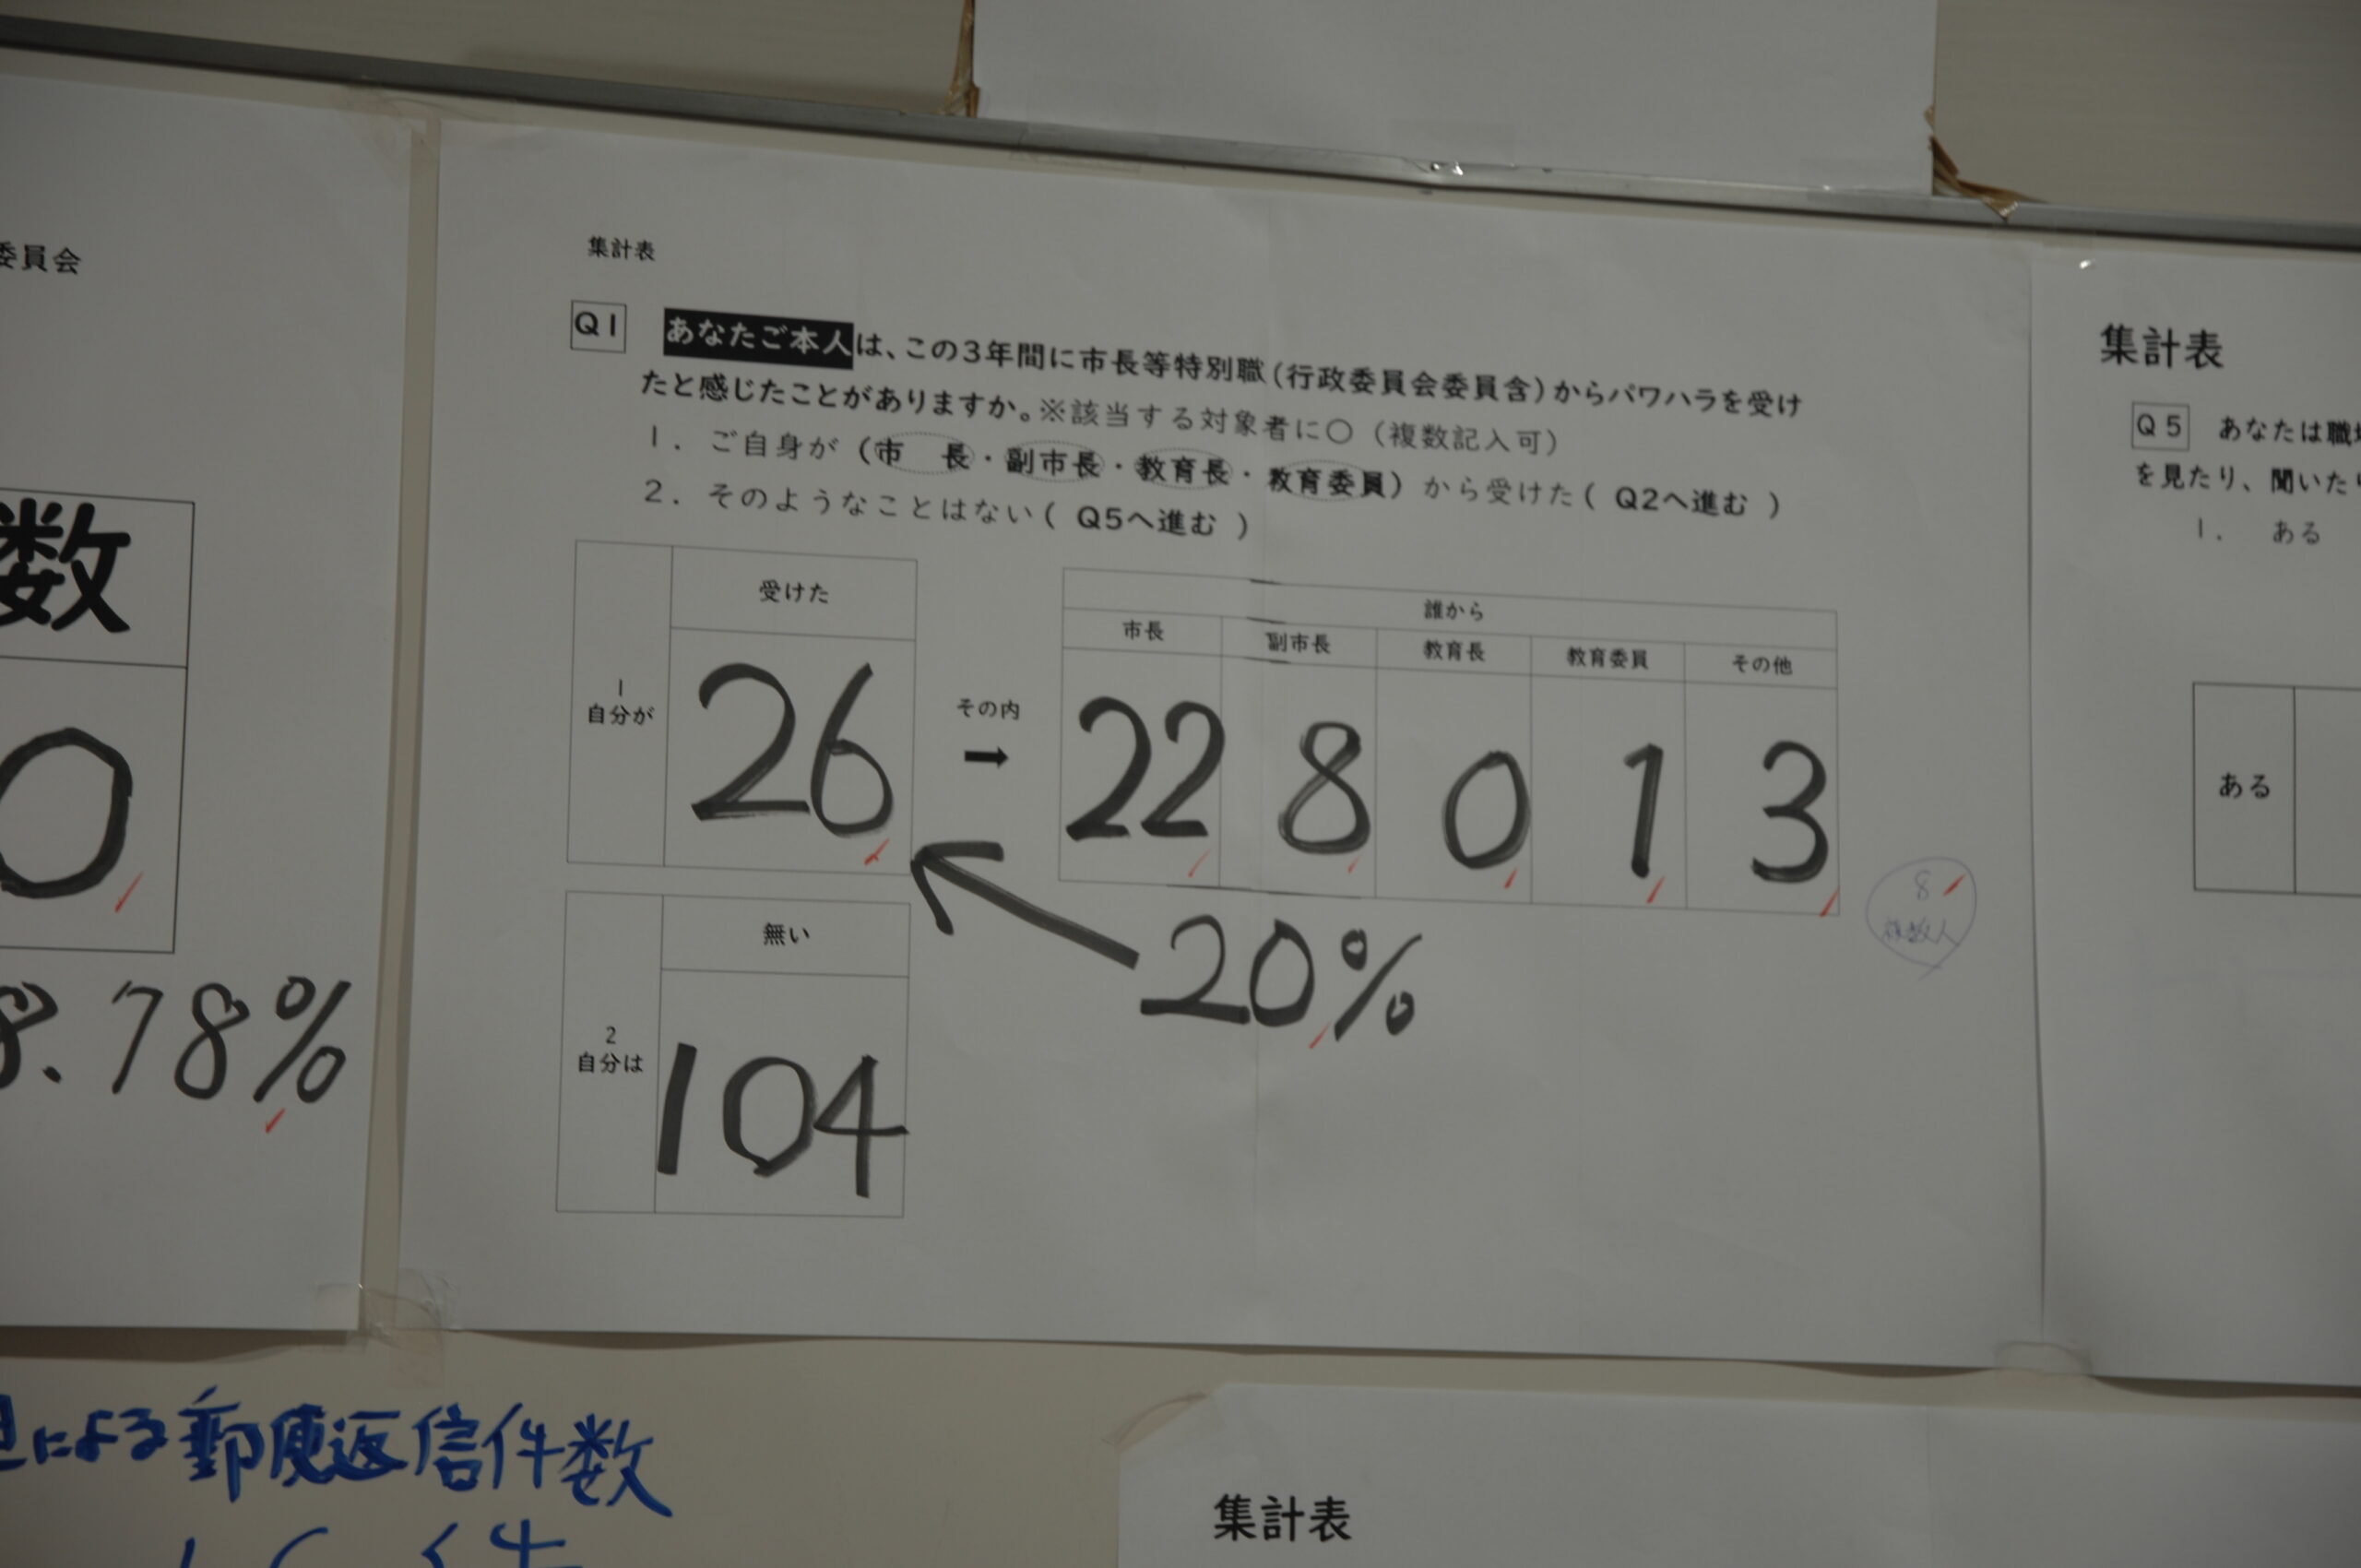 委員会
数
0
8.78%
集計表
Q1 あなたご本人は、この3年間に市長等特別職(行政委員会委員含)からパワハラを受け
たと感じたことがありますか。※該当する対象者に○(複数記入可)
1. ご自身が(市 長・副市長・教育長・教育委員)から受けた( Q2へ進む )
2. そのようなことはない( Q5へ進む )
受けた
1
自分が
26
その内
➡
誰から
市長 副市長 教育長 教育委員 その他
22 8 0 1 3
8
複数人
20%
無い
2
自分は
104
集計表
Q5 あなたは職
を見たり、聞いたり
1. ある
ある
による郵便返信件数
件
集計表